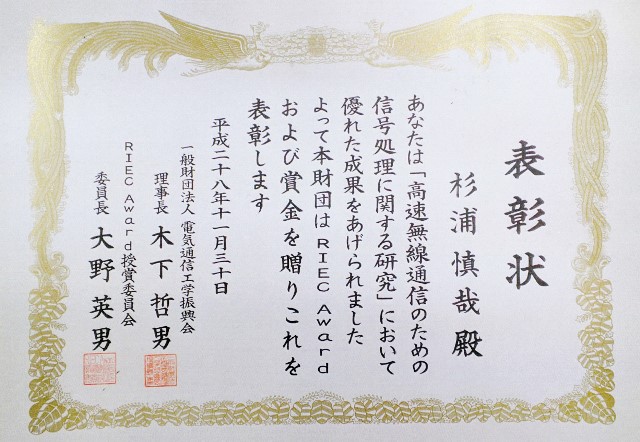 表彰状
杉浦慎哉殿
あなたは「高速無線通信のための
信号処理に関する研究」において
優れた成果をあげられました
よって本財団はRIEC Award
および賞金を贈りこれを
表彰します
平成二十八年十一月三十日
一般財団法人 電気通信工学振興会
理事長 木下哲男
RIEC Award授賞委員会
委員長 大野英男